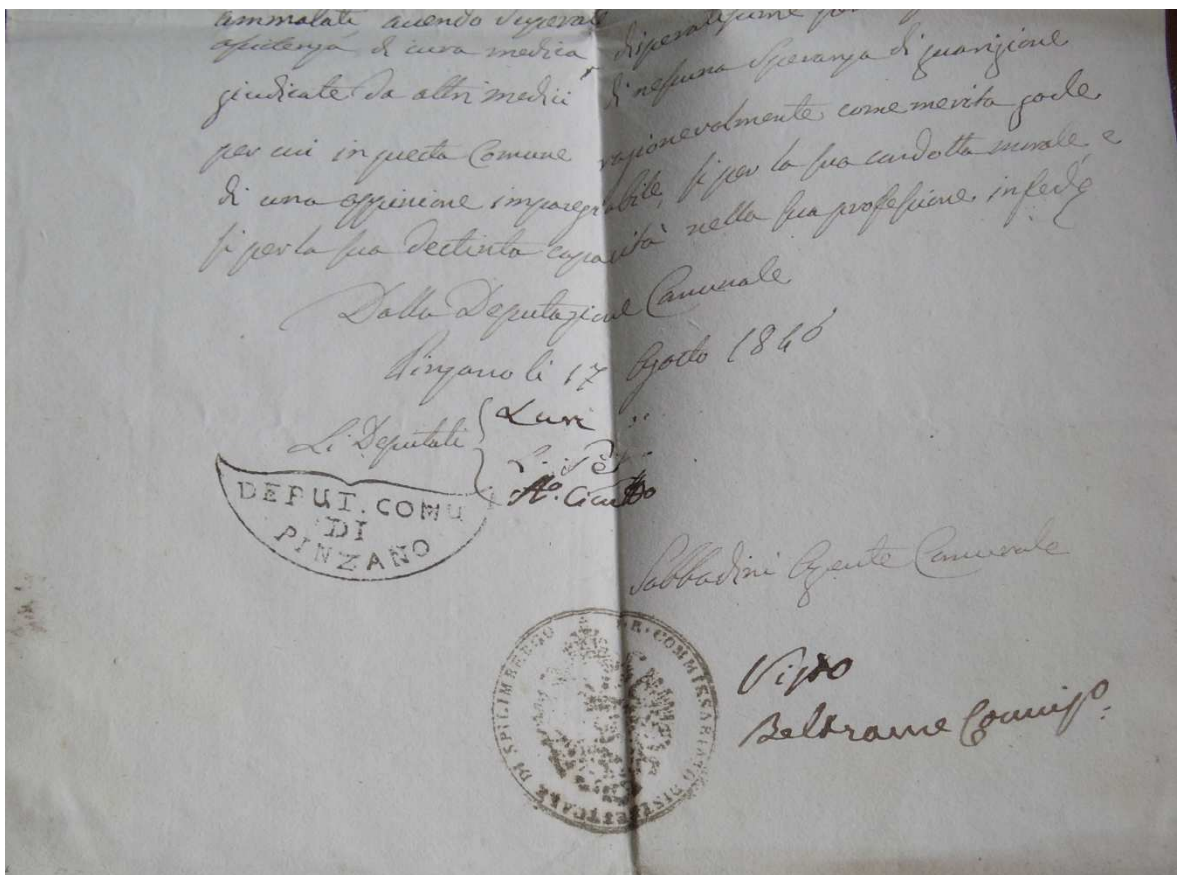 ammalati avendo superato
assistenza di cura medica disperatissime
giudicate da altri medici di nessuna Speranza di guarigione
per cui in questa Comune ragionevolmente come merita gode
di una oppinione impareggiabile, si per la sua condotta morale e
si per la sua destinta capacità nella sua professione. in fede
Dalla Deputazione Comunale
Pinzano li 17 Agosto 1846
Li Deputati
DEPUT. COMU
DI
PINZANO
Sabbadini Agente Comunale
R. COMMISSARIATO DISTRETTUALE DI SPILIMBERGO
Visto
Beltrame Commisso.